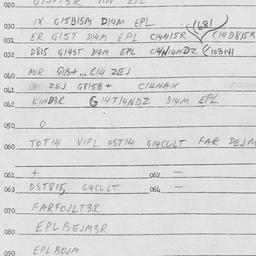 020
030 IX G15B15M D14M EPL (681
031 ER G15T D14M EPL C14N15R C14D815R
032 D815 G14ST D14M EPL C14N14NDZ (103141)
040 MIR G1B+... C14 ZEJ
041 ZEJ G815B+ C14NAX
042 KIND3R G14T14NDZ D14M EPL
050 O
060 TOT14 VIFL OST14 G14CULT FAR DEJM
061 + 062 —
063 OST815 G14CULT 064 —
070 FARFOJLT3R
080 EPLBEJM3R
090 EPLBOJM